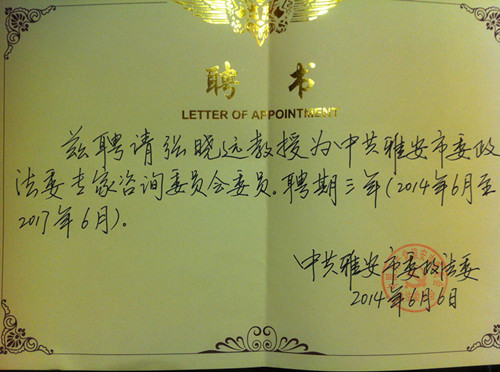 聘书
LETTER OF APPOINTMENT
兹聘请张晓远教授为中共雅安市委政
法委专家咨询委员会委员。聘期三年(2014年6月至
2017年6月)。
中共雅安市委政法委
2014年6月6日